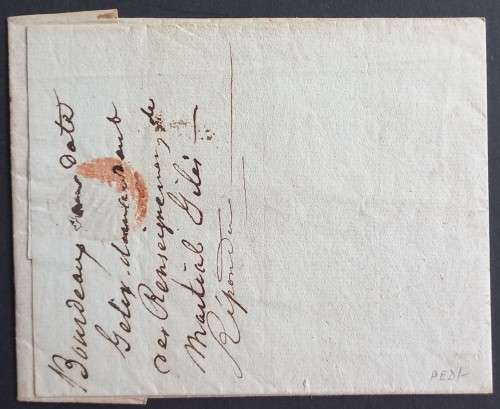 Bourdeaux sans Date
Gelix demandant
des Renseignemens de
Martial Gilis
Répondu
PEDI-